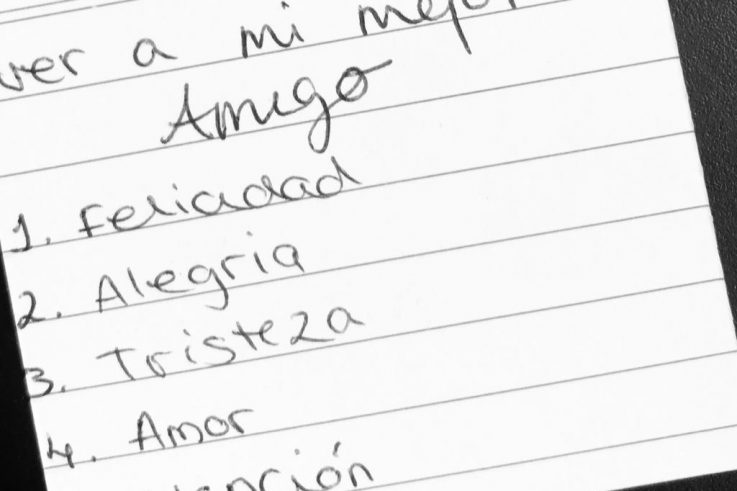 ver a mi mejor
Amigo
1. Felicidad
2. Alegria
3. Tristeza
4. Amor